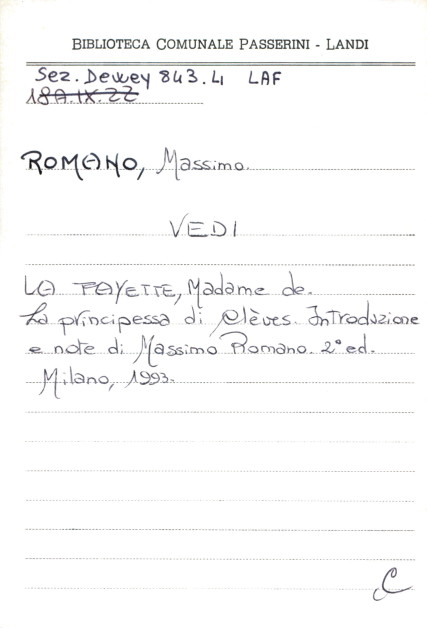 BIBLIOTECA COMUNALE PASSERINI - LANDI
Sez. Dewey 843.4 LAF
18A.IX.22
ROMANO, Massimo.
VEDI
LA FAYETTE, Madame de.
La principessa di Clèves. Introduzione
e note di Massimo Romano. 2° ed.
Milano, 1993.
C